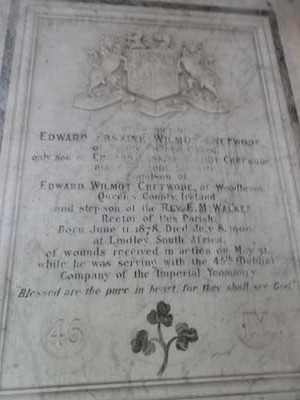 EDWARD ERSKINE WILMOT CHETWODE,
only son of EDWARD ERSKINE WILMOT CHETWODE
grandson of
EDWARD WILMOT CHETWODE, of Woodbrook
Queen's County, Ireland
and step-son of the REV. E. M. WALKER
Rector of this Parish.
Born June 11. 1878, Died July 8. 1900,
at Lindley, South Africa,
of wounds received in action on May
while he was serving with the 45th (Dublin)
Company of the Imperial Yeomanry.
"Blessed are the pure in heart, for they shall see God."
45